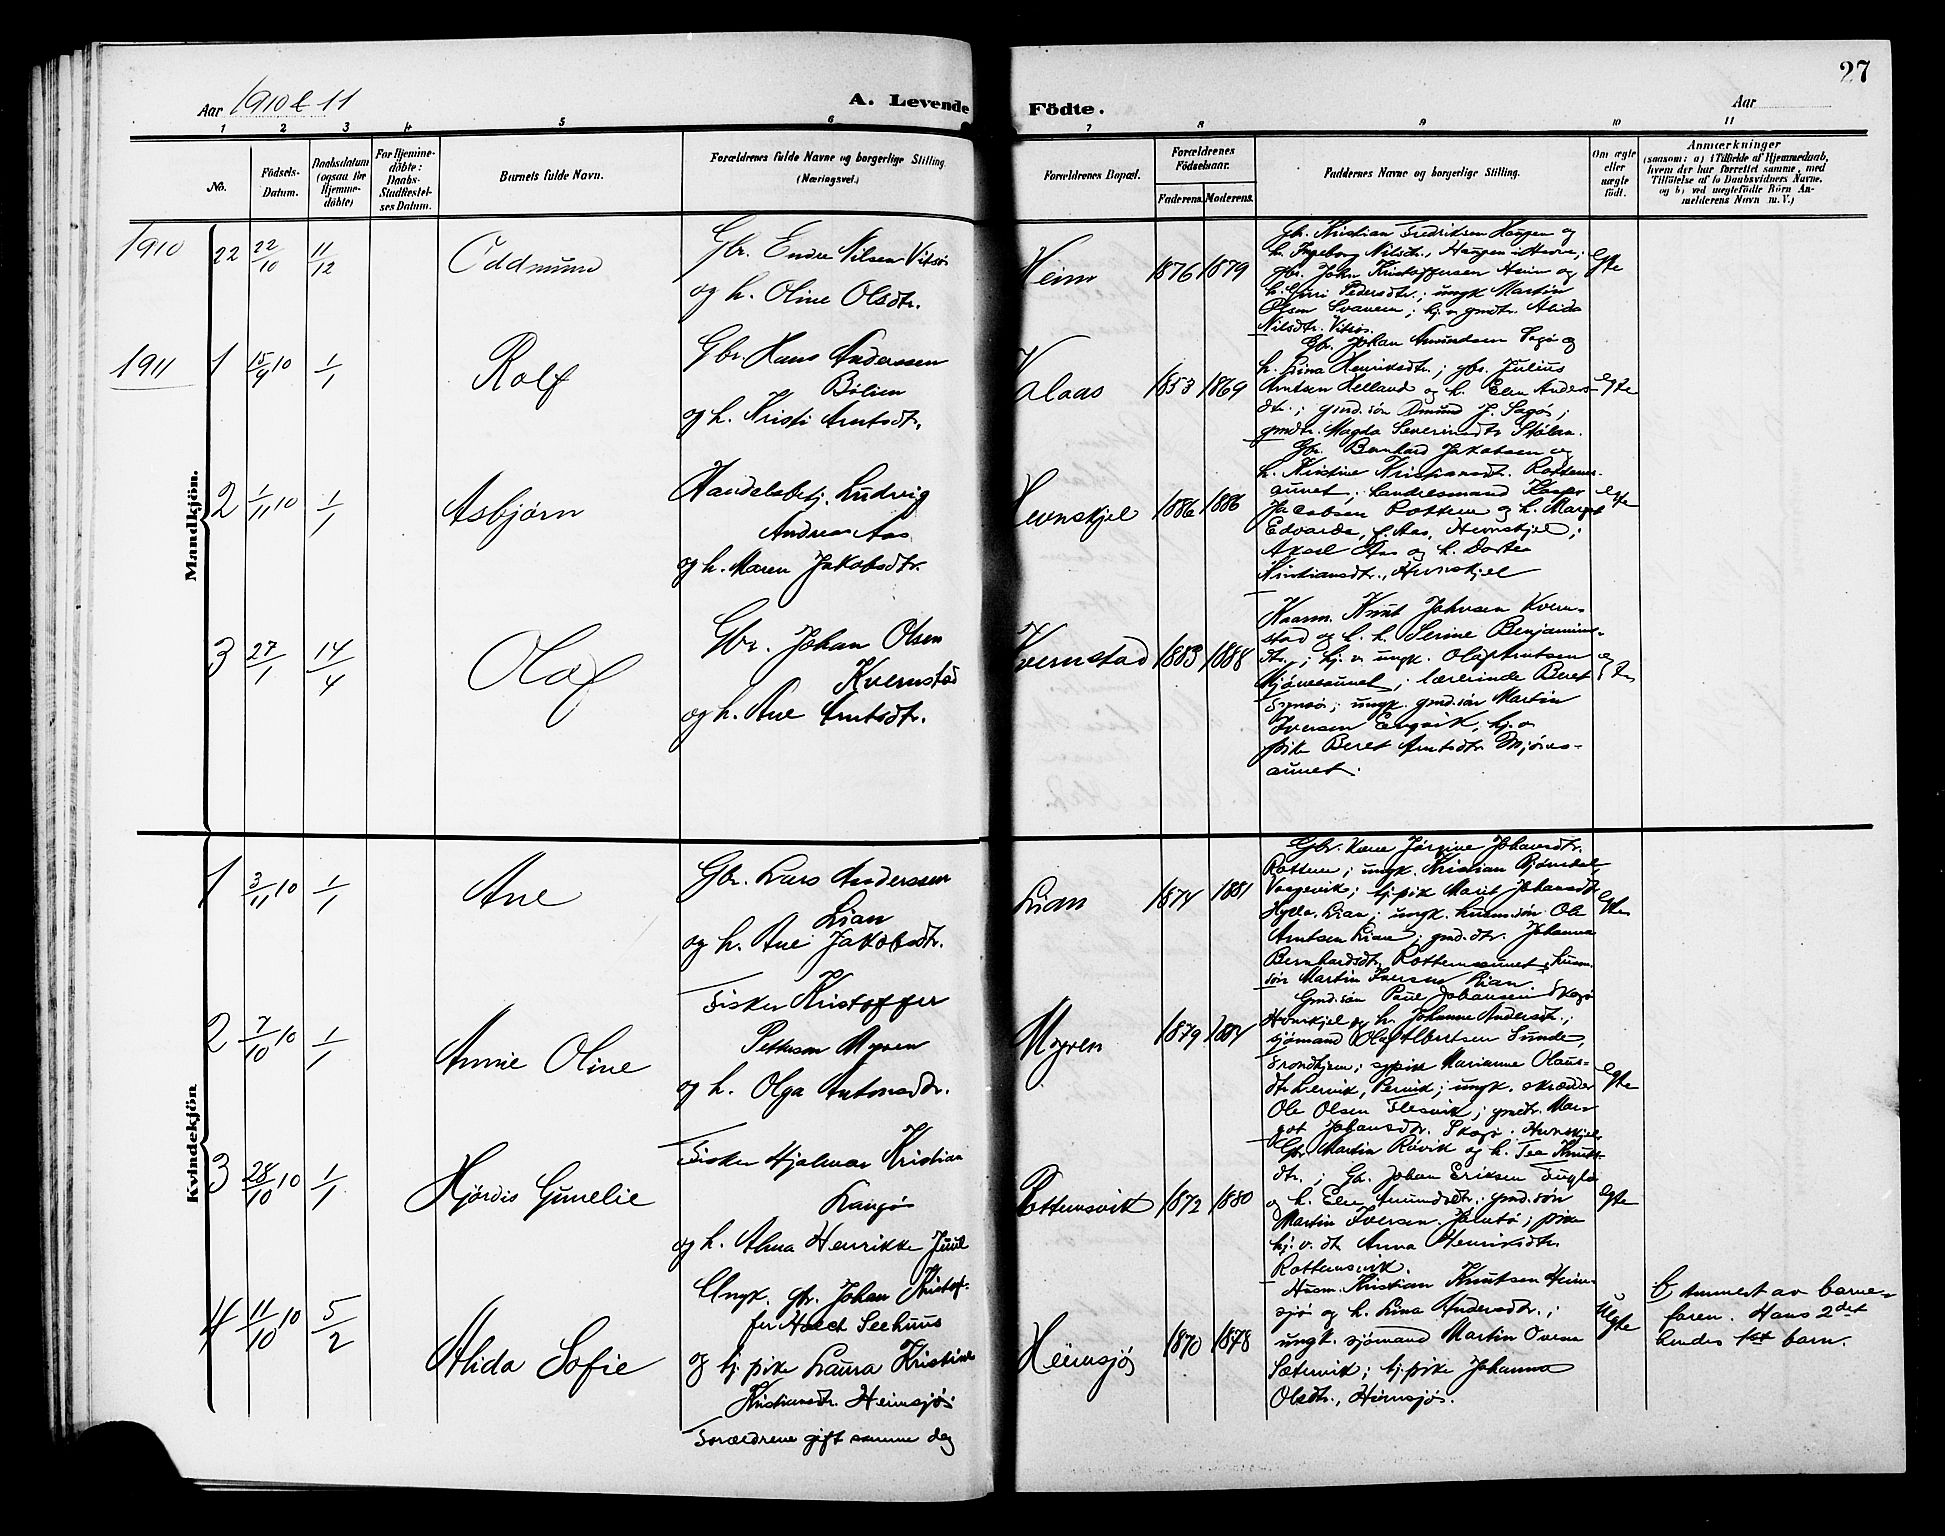 27
Aar 1910 & 11
A. Levende Födte.
Aar
1 2 3 4 5 6 7 8 9 10 11
No.
Födsels-Datum.
Daabsdatum (ogsaa for Hjemme-döbte)
For Hjemme-döbte: Daabs-Stadfestel-ses Datum.
Barnets fulde Navn.
Forældrenes fulde Navne og borgerlige Stilling. (Næringsvei.)
Forældrenes Bopæl.
Forældrenes Födselsaar.
Faderens. Moderens.
Faddernes Navne og borgerlige Stilling.
Om ægte eller uægte födt.
Anmærkninger
(saasom: a) i Tilfælde af Hjemmedaab, hvem der har forrettet samme, med Tilföielse af to Daabsvidners Navne, og b) ved uegtefödte Börn An-melderens Navn m. V.)
Mandkjön.
1910
22 22/10 11/12 Oddmund
Gbr. Endre Nilsen Vitsö
og h. Oline Olsdtr.
Heim 1876 1879
Gb. Kristian Fredriksen Haugen og
h. Ingeborg Nilsdtr., Haugen i Hevne;
gbr. John Kristoffersen Heim og
h. Guri Pedersdtr.; ungk Martin
Olsen Svanem; hj. v. gmdtr. Alida
Nilsdtr. Vitsö.
Egte
1911
1 15/9 10 1/1 Rolf
Gbr. Hans Anderssen
Bölien
og h. Kristi Arntsdtr.
1853 1869
Gbr. Johan Amundsen Sagö og
h. Lina Henriksdtr; gbr. Julius
Arntsen Helland og h. Elen Anders-
dtr.; gmd.sön Amund J. Sagö;
gmdtr. Magda Severinsdtr Stölan.
Egte
2 1/11 10 1/1 Asbjørn
Handelsbetj. Ludvig
Andreas Aas
og h. Maren Jakobsdtr.
Hevnskjel 1886 1886
Gbr. Bernhard Jakobsen og
h. Kristine Kristiansdt. Rottems-
aunet; Landresmand Kasper
Jacobsen Rottem og h. Marget
Edvarda, f. Aas, Hevnskjel;
Axel Aas og h. Dortea
Kristiansdtr., Hevnskjel
Egte
3 27/1 14/4 Olaf
Gbr. Johan Olsen
Kvernstad
og h. Ane Arntsdtr.
Kvernstad 1883 1888
Husm. Knut Johnsen Kvern-
stad og h. h. Serine Benjamins-
dtr.; hj. v. ungk. Olaf Arntsen
Mjönesaunet; lærerinde Beret
ungk. gmd.sön Martin
Iversen Engvik; hj. v
pike Beret Arntsdtr Mjönes-
aunet.
Kvindekjön
1 3/11 10 1/1 Ane
Gbr. Lars Anderssen
Lian
og h. Ane Jakobsdtr.
Lian 1874 1881
Gbr. kone Jörgine Johansdtr.
Rottem; ungk. Kristian Björndal,
Vaagevik; tj.pik Marit Johansdtr
Lian; ungk. husm.sön Ole
Arntsen Lian; gmd.dtr. Johanna
Bernhardsdtr, Rottemsaunet; husm.
sön Martin Iversen Lian.
Egte
2 7/10 10 1/1 Annie Oline
Fisker Kristoffer
Petterson Myren
og h. Olga Antonsdtr.
Myren 1879 1884
Gmd.sön Paul Johansen Skagö
Hevnskjel og h. Johanne Andersdt.;
sjömand Olaf Albertsen Sunde,
Trondhjem; pike Marianne Olaus-
dtr. Lervik; ungk. skrædder
Ole Olsen Flesvik; gmdtr. Mar-
got Johansdtr. Skagö, Hevnskjel
Egte
3 28/10 10 1/1 Hjørdis Gunelie
Fisker Hjalmar Kristian
Langøs
og h. Alma Henrikke Juul
Rottemsvik 1872 1880
Gbr Martin Rövik og h. Tea Knuts-
dtr.; Gbr. Johan Eriksen Fuglö
og h. Elen Amundsdtr; gmd.sön
Martin Iversen Jamtö; pike
hj. v. dt. Anna Henriksdtr.
Rottemsvik.
Egte
4 11/10 10 5/2 Alida Sofie
Ungk. gbr. Johan Kristof-
fer Holct Seehuus
og tj. pike Laura Kristine
Kristiansdtr. Heimsjö
Forældrene gift samme dag
Heimsjö 1870 1878
Husm. Kristian Knutsen Heim-
sjö og h. Lina Andersdtr.;
ungk. sjömand Martin Ovesen
Sætervik; tj. pike Johanna
Olsdtr., Heimsjö.
Uegte
Anmeldt av barne-
faren. Hans 2det
hendes 1st barn.